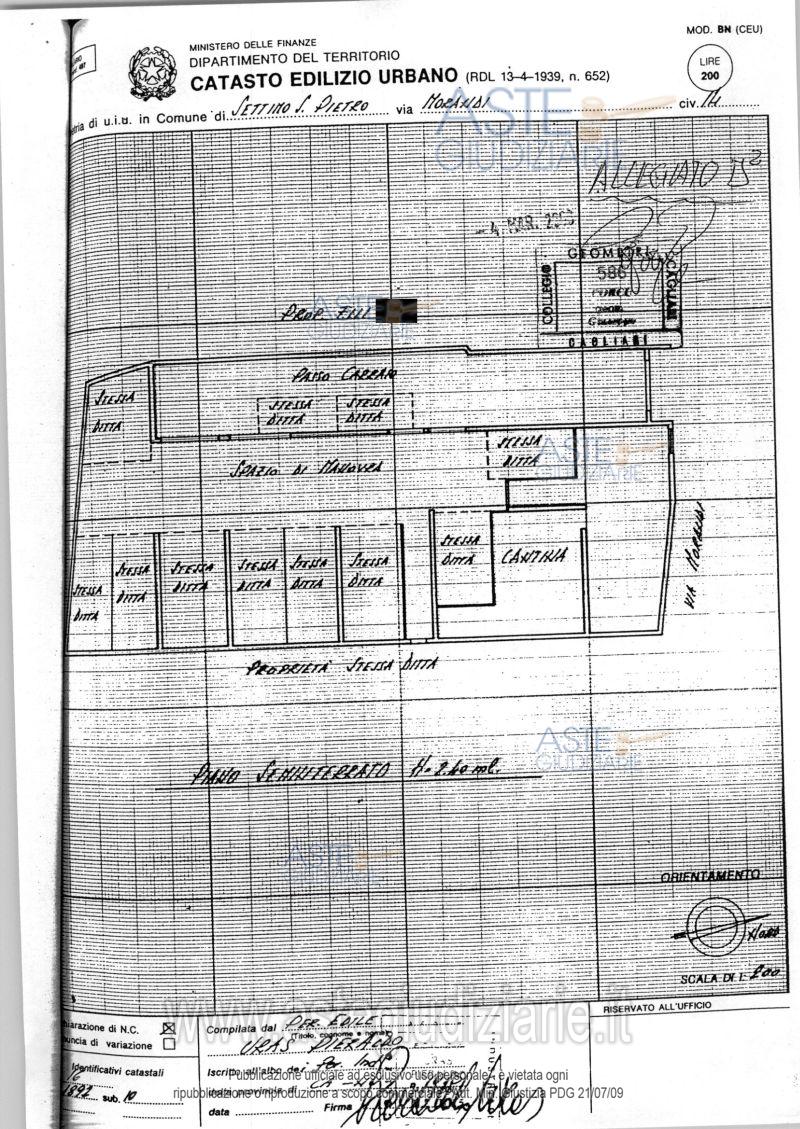 MOD. BN (CEU)
MINISTERO DELLE FINANZE
DIPARTIMENTO DEL TERRITORIO
CATASTO EDILIZIO URBANO (RDL 13-4-1939, n. 652)
LIRE
200
etria di u.i.u. in Comune di SETTIMO S. PIETRO via MORANDI civ.
ASTE
GIUDIZIARIE
ALLEGATO
4 MAR.
GEOMETRI
COLLEGIO
586
CAGLIARI
CAGLIARI
PROP. F.LLI
ASTE
GIUDIZIARIE
PASSO CARRAIO
STESSA
DITTA
STESSA
DITTA
STESSA
DITTA
STESSA
DITTA
ASTE
GIUDIZIARIE
SPAZIO DI MANOVRA
STESSA
DITTA
STESSA
DITTA
STESSA
DITTA
STESSA
DITTA
STESSA
DITTA
STESSA
DITTA
STESSA
DITTA
CANTINA
VIA MORANDI
PROPRIETÀ STESSA DITTA
ASTE
GIUDIZIARIE
PIANO SEMINTERRATO H= 2.40 ml.
ASTE
GIUDIZIARIE
ORIENTAMENTO
NORD
SCALA DI 1: 200
www.astegiudiziarie.it
RISERVATO ALL'UFFICIO
hiarazione di N.C.
nuncia di variazione
Compilata dal PER. EDILE
(Titolo, cognome e nome)
URAS PIERALDO
Identificativi catastali
Iscritto all'albo dei
della provincia di
1892 sub. 10
data Firma
Pubblicazione ufficiale ad esclusivo uso personale - è vietata ogni
ripubblicazione o riproduzione a scopo commerciale - Aut. Min. Giustizia PDG 21/07/09